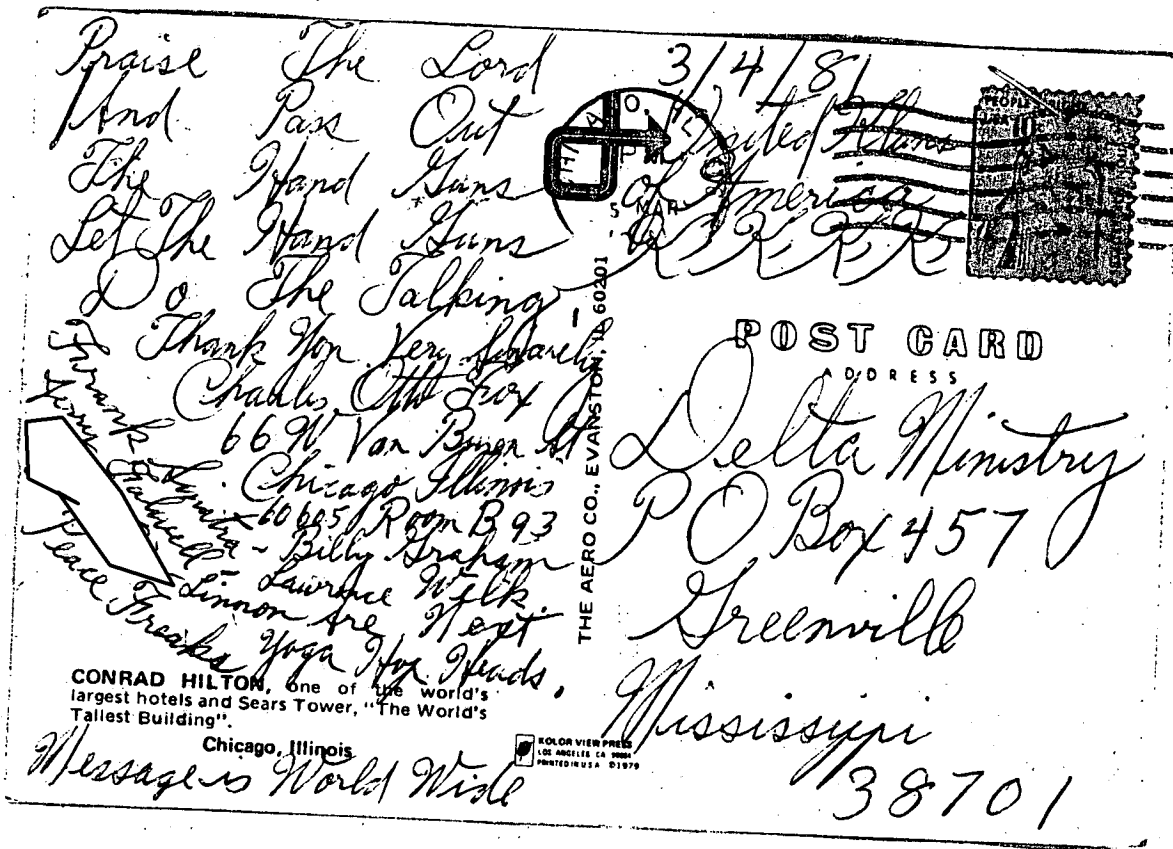 Praise The Lord
And Pass Out
The Hand Guns
Let The Hand Guns
Do The Talking
Thank You Very
Charles Otto Fox
66 W Van Buren St
Chicago Illinois
60605 Room B 93
Frank Synatra - Billy Graham
Jerry Falwell - Lawrence Welk
Linnon Are Next
Peace Freaks Yoga Hog Heads.
CONRAD HILTON, one of the world's
largest hotels and Sears Tower, "The World's
Tallest Building".
Chicago, Illinois
Message is World Wide
THE AERO CO., EVANSTON, Ill 60201
KOLOR VIEW PRESS
LOS ANGELES CA
PRINTED IN USA ©1979
3/4/81
United Klans
of America
K K K K
MAR
POST CARD
ADDRESS
Delta Ministry
P O Box 457
Greenville
Mississippi
38701